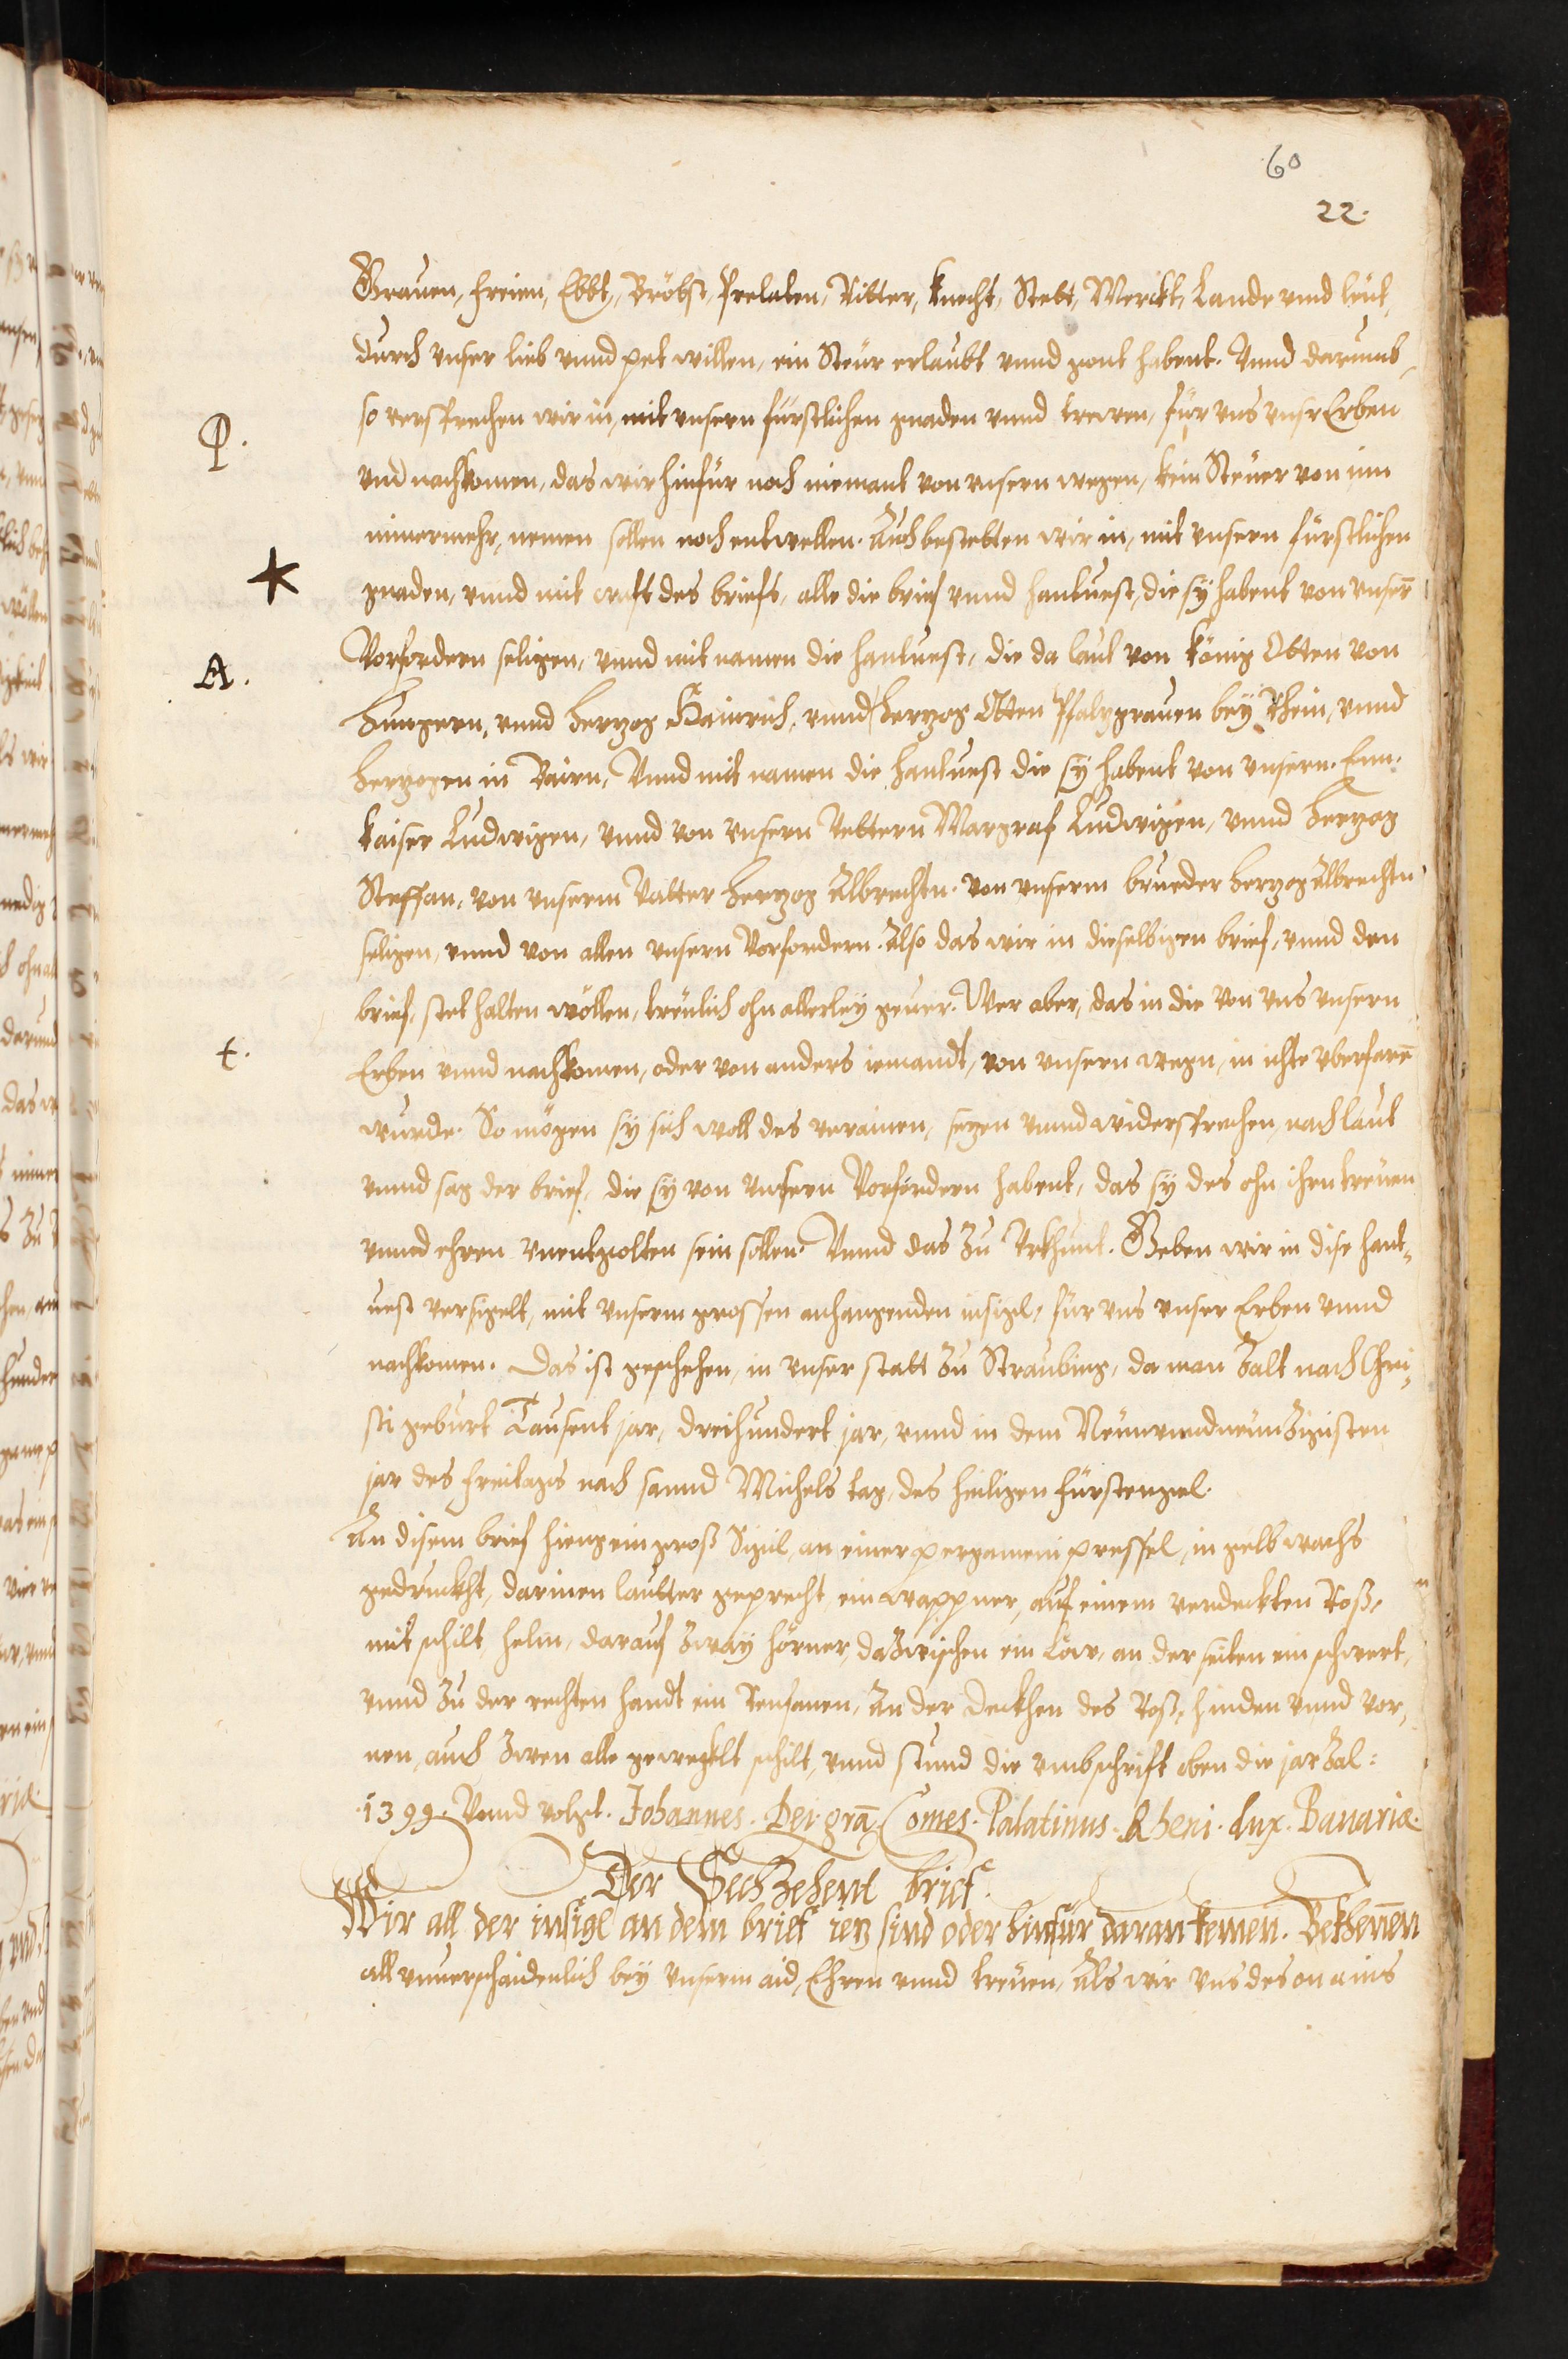 60
22.
Grauen, Freien, Ebbt, Bröbst, Prelaten, Ritter, Knecht, Stett, Merckt, Lande vnnd leüt,
durch vnser lieb vnnd pet willen, ein Steür erlaubt vnnd gont habent. Vnnd darumb
so versprechen wir in, mit vnsern fürstlichen gnaden vnnd trewen, für vns vnser Erben
P.
vnd nachkomen, das wir hinfür noch niemant von vnsern wegen, kein Steüer von inn
nimermehr, nemen sollen noch entwellen. Auch bestetten wir in, mit vnsern fürstlichen
gnaden, vnnd mit craft des briefs, alle die brief vnnd hantuest, die sy habent von vnsern̄
Vorfordern seligen, vnnd mit namen die hantuest, die da laut von König Otten von
A.
Hungern, vnnd Herzog Hainrich, vnnd Herzog Otten Pfalzgrauen bey Rhein, vnnd
Herzogen in Bairn, Vnnd mit namen die hantuest die sy habent von vnserm Enn.
Kaiser Ludwigen, vnnd von vnsern Vettern Margraf Ludwigen, vnnd Herzog
Steffan, von vnserm Vatter Herzog Albrechtn. von vnserm brueder Herzog Albrechtn
seligen, vnnd von allen vnsern Vorfordern. Also das wir in dieselbigen brief, vnnd den
brief, stet halten wöllen, treülich ohn allerley geuer. Wer aber, das in die von vns vnsern
t.
Erben vnnd nachkomen, oder von anders iemandt, von vnsern wegn, in ichte vberfarn̄
wurde. So mögen sy sich woll des verainen, sezen vnnd widersprechen, nach laut
vnnd sag der brief, die sy von vnsern Vorfordern habent, das sy des ohn ihrn treüen
vnnd ehren vnentgolten sein sollen. Vnnd das zu Vrkhunt. Geben wir in dise hant-
uest versigelt, mit vnserm grossen anhangenden insigl, für vns vnser Erben vnnd
nachkomen. Das ist geschehen, in vnser statt zu Straubing, da man zalt nach Chri-
sti geburt Tausent jar, dreihundert jar, vnnd in dem Neünvndneünzigisten
jar des Freitags nach sannd Michels tag, des heiligen Fürstengel.
An disem brief hieng ein groß Sigil, an einer pergameni pressel, in gelb wachs
gedruckht, darinen lautter geprecht, ein wappner, auf einem verdeckten Roß,
mit schilt, helm, darauf zway hörner, dazwischen ein Löw, an der seiten ein schwert,
vnnd zu der rechten handt ein Renfanen, An der deckhen des Roß, hinden vnnd vor-
nen, auch zwen alls geweckelt schilt, vnnd stund die vmbschrift oben die jarzal:
1399. Vnnd volgt. Johannes. Dei. gr̄a. Comes. Palatinus. Rheni. dux. Bauariæ.
Der Sechzehent brief.
Wir all der insigl an dem brief iez sind oder hinfür daran kemen. Bekhenn̄en
all vnuerschaidenlich bey vnserm aid, Ehren vnnd treüen, Als wir vns des on ains